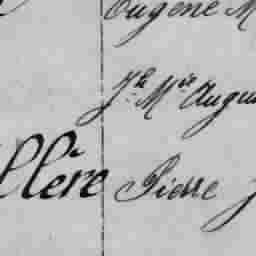 Eugène M
Jh Mie Augu
llère Pierre J